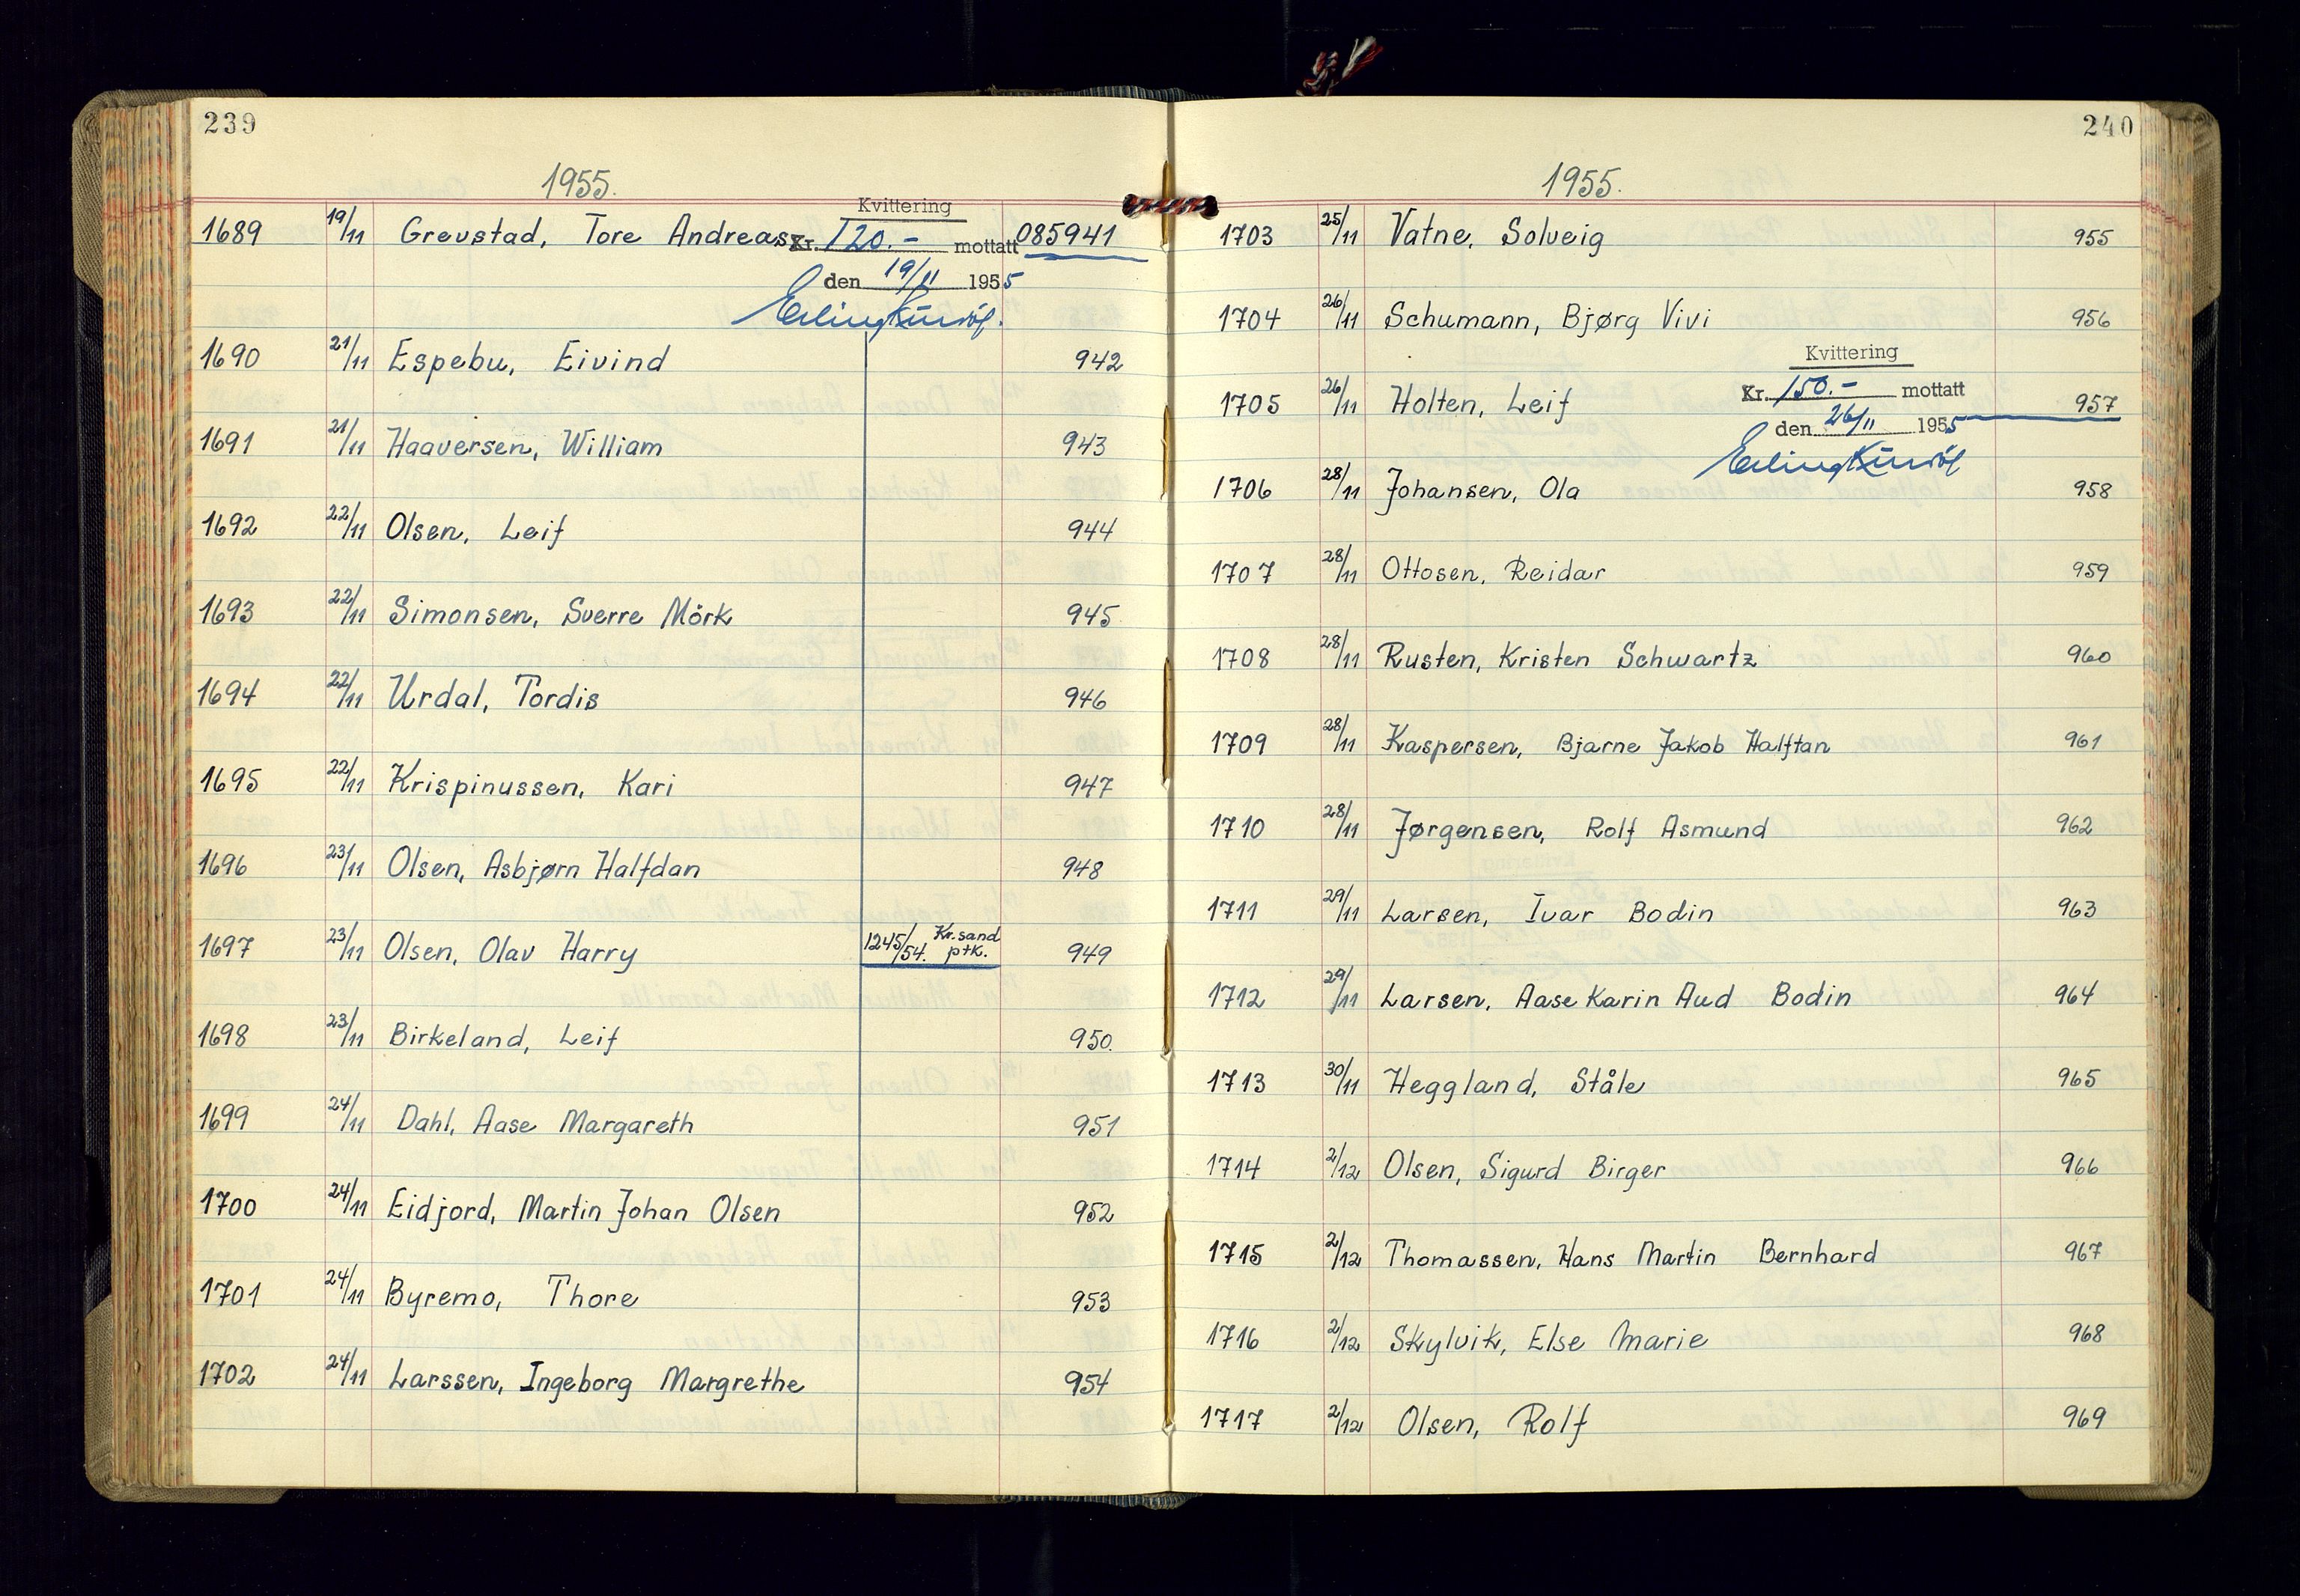 239
1955.
Kvittering
1689 19/11 Grevstad, Tore Andreas Kr. 120.- mottatt 085941
den 19/11 1955
1690 21/11 Espebu, Eivind 942
1691 21/11 Haaversen, William 943
1692 22/11 Olsen, Leif 944
1693 22/11 Simonsen, Sverre Mörk 945
1694 22/11 Urdal, Tordis 946
1695 22/11 Krispinussen, Kari 947
1696 23/11 Olsen, Asbjørn Halfdan 948
1697 23/11 Olsen, Olav Harry 1245/54. Kr.sand ptk. 949
1698 23/11 Birkeland, Leif 950.
1699 24/11 Dahl, Aase Margareth 951
1700 24/11 Eidjord, Martin Johan Olsen 952
1701 24/11 Byremo, Thore 953
1702 24/11 Larssen, Ingeborg Margrethe 954
240
1955.
1703 25/11 Vatne, Solveig 955
1704 26/11 Schumann, Bjørg Vivi 956
Kvittering
Kr. 150.- mottatt
1705 26/11 Holten, Leif 957
den 26/11 1955
Erling
1706 28/11 Johansen, Ola 958
1707 28/11 Ottosen, Reidar 959
1708 28/11 Rusten, Kristen Schwartz 960
1709 28/11 Kaspersen, Bjarne Jakob Halftan 961
1710 28/11 Jørgensen, Rolf Asmund 962
1711 29/11 Larsen, Ivar Bodin 963
1712 29/11 Larsen, Aase Karin Aud Bodin 964
1713 30/11 Heggland, Ståle 965
1714 2/12 Olsen, Sigurd Birger 966
1715 2/12 Thomassen, Hans Martin Bernhard 967
1716 2/12 Skylvik, Else Marie 968
1717 2/12 Olsen, Rolf 969